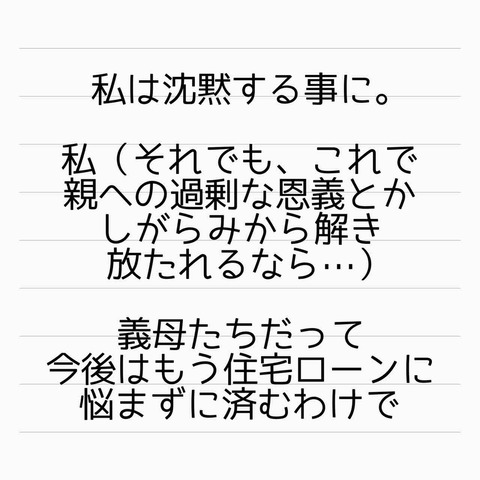 私は沈黙する事に。
私（それでも、これで
親への過剰な恩義とか
しがらみから解き
放たれるなら…）
義母たちだって
今後はもう住宅ローンに
悩まずに済むわけで